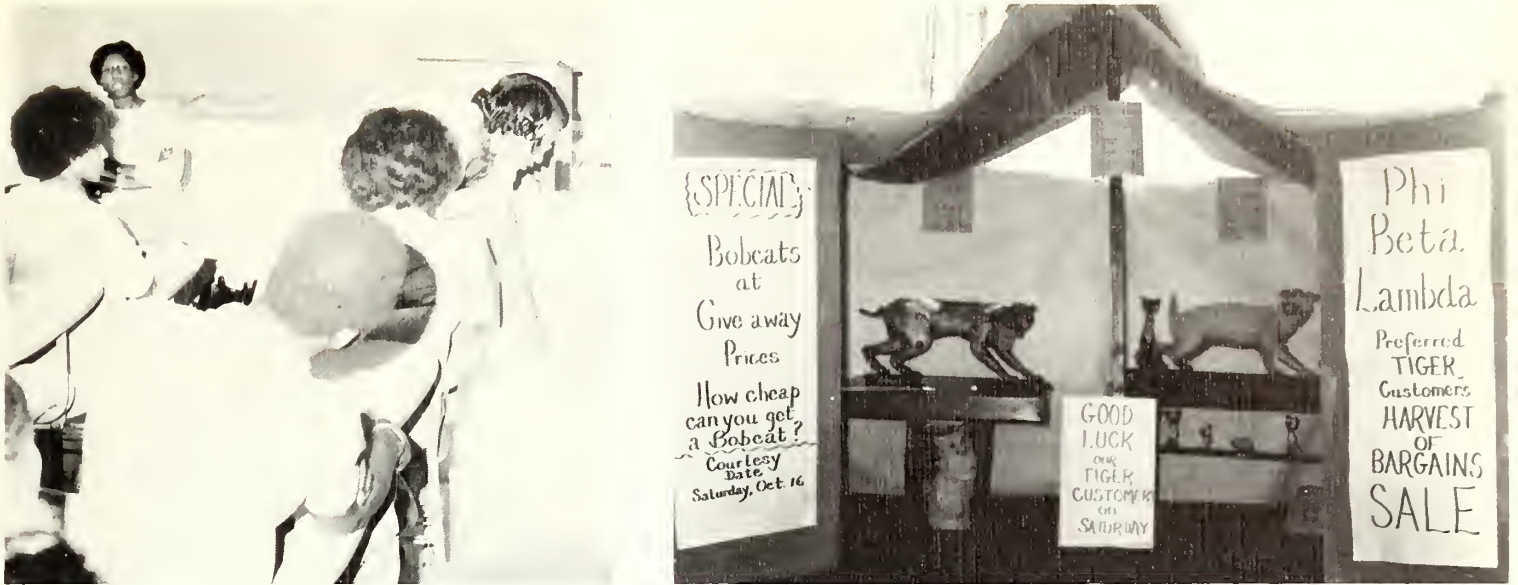 {SPECIAL}
Bobcats
at
Give away
Prices
How cheap
can you get
a Bobcat?
Courtesy
Date
Saturday, Oct. 16
GOOD
LUCK
OUR
TIGER
CUSTOMER
on
SATURDAY
Phi
Beta
Lambda
Preferred
TIGER
Customers
HARVEST
OF
BARGAINS
SALE